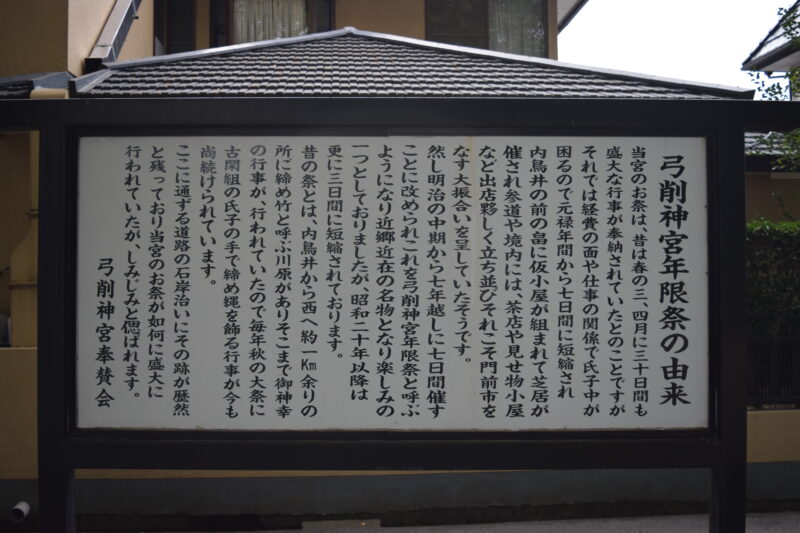 弓削神宮年限祭の由来
当宮のお祭は、昔は春の三、四月に三十日間も
盛大な行事が奉納されていたとのことですが
それでは経費の面や仕事の関係で氏子中が
困るので元禄年間から七日間に短縮され
内鳥井の前の畠に仮小屋が組まれて芝居が
催され参道や境内には、茶店や見せ物小屋
など出店夥しく立ち並びそれこそ門前市を
なす大振合いを呈していたそうです。
然し明治の中期から七年越しに七日間催す
ことに改められこれを弓削神宮年限祭と呼ぶ
ようになり近郷近在の名物となり楽しみの
一つとしておりましたが、昭和二十年以降は
更に三日間に短縮されております。
昔の祭とは、内鳥井から西へ約一Km余りの
所に締め竹と呼ぶ川原がありそこまで御神幸
の行事が、行われていたので毎年秋の大祭に
古閑組の氏子の手で締め縄を飾る行事が今も
尚続けられています。
ここに通ずる道路の石岸沿いにその跡が歴然
と残っており当宮のお祭が如何に盛大に
行われていたが、しみじみと偲ばれます。
弓削神宮奉賛会